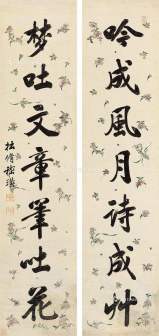 吟成風月詩成艸
梦吐文章筆吐花